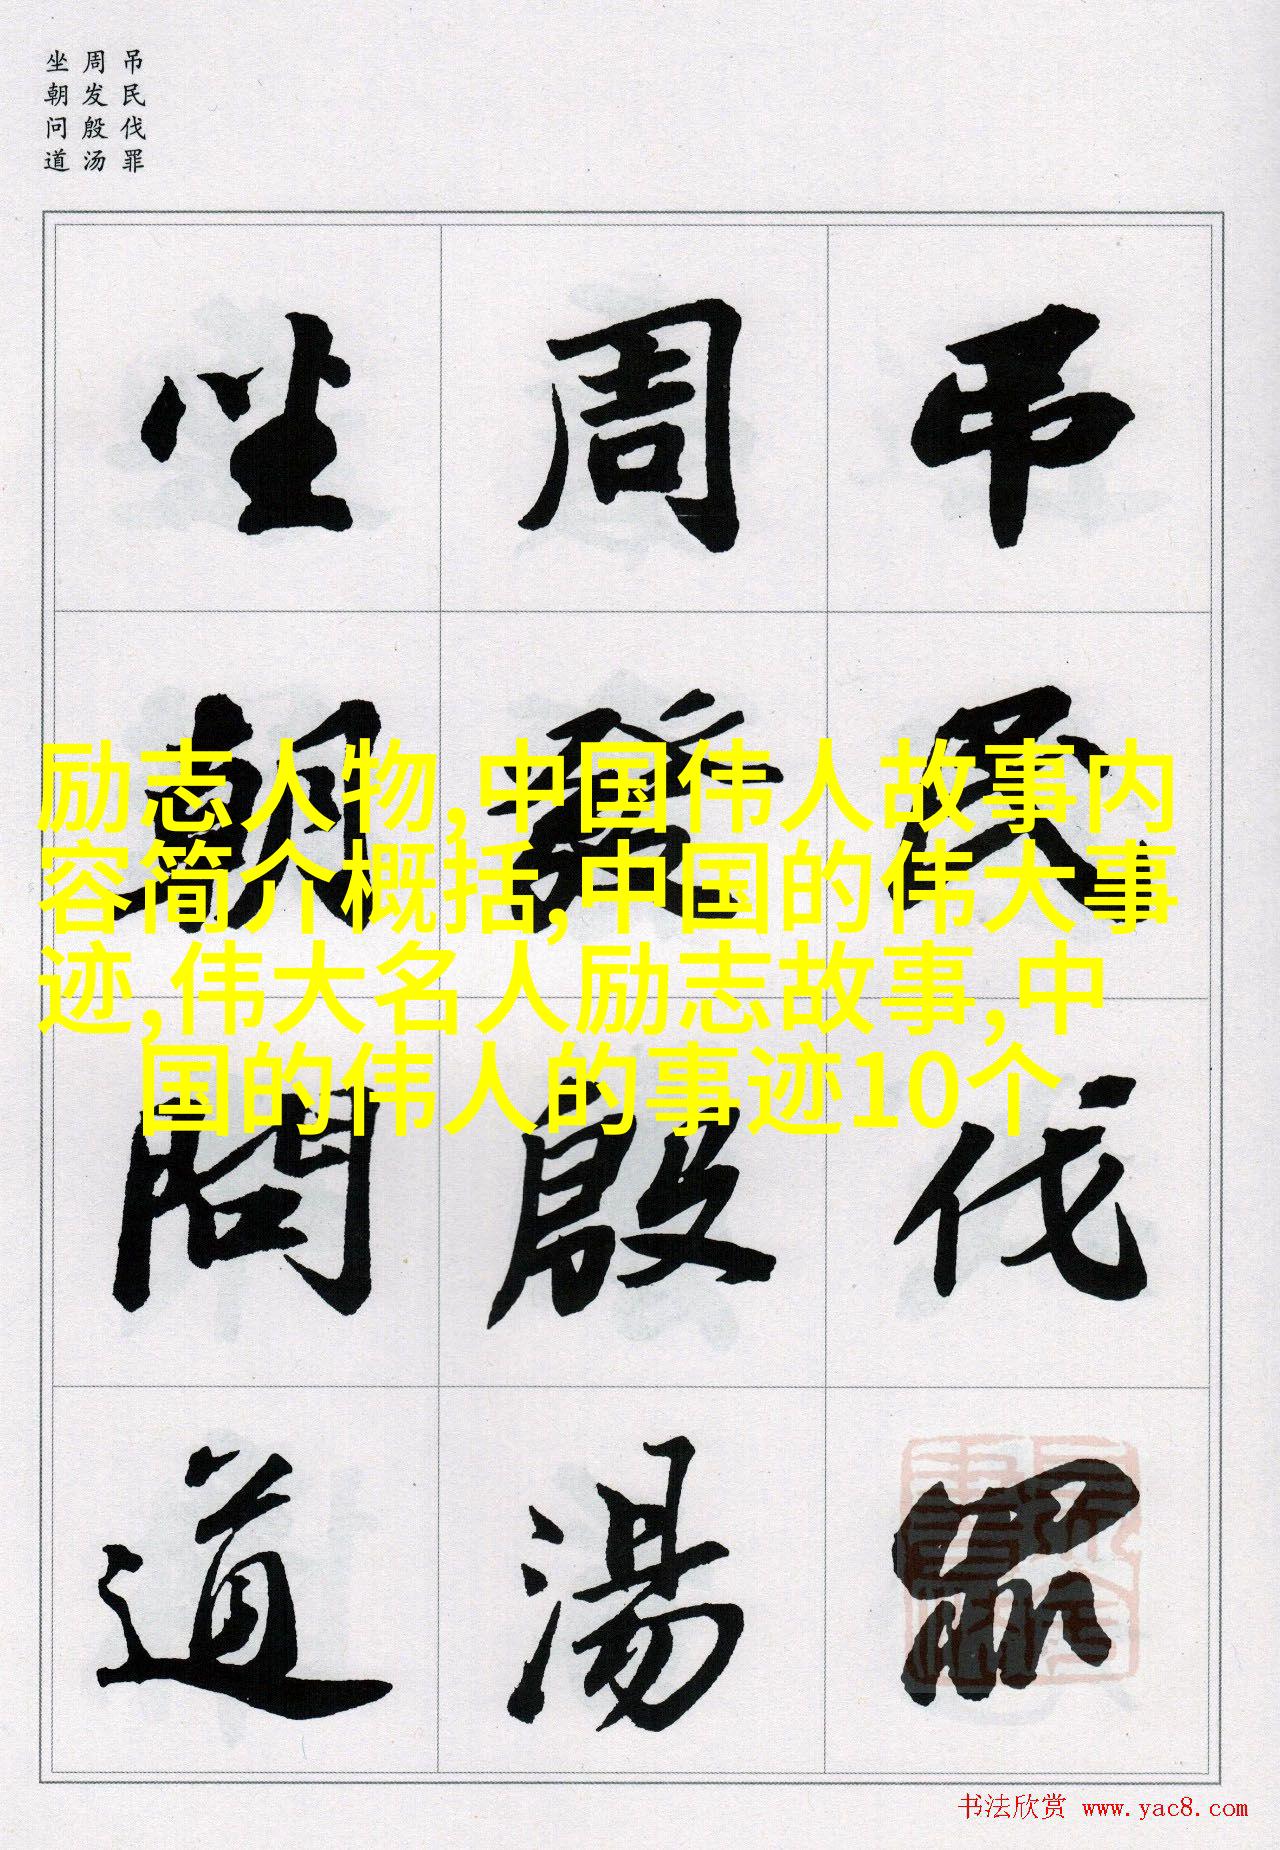 吊民伐罪
周发殷汤
坐朝问道
吊民伐罪
周發殷湯
坐朝問道
励志人物,中国伟人故事内
容简介概括,中国的伟大事
迹,伟大名人励志故事,中
国的伟人的事迹10个
书法欣赏 www.yac8.com